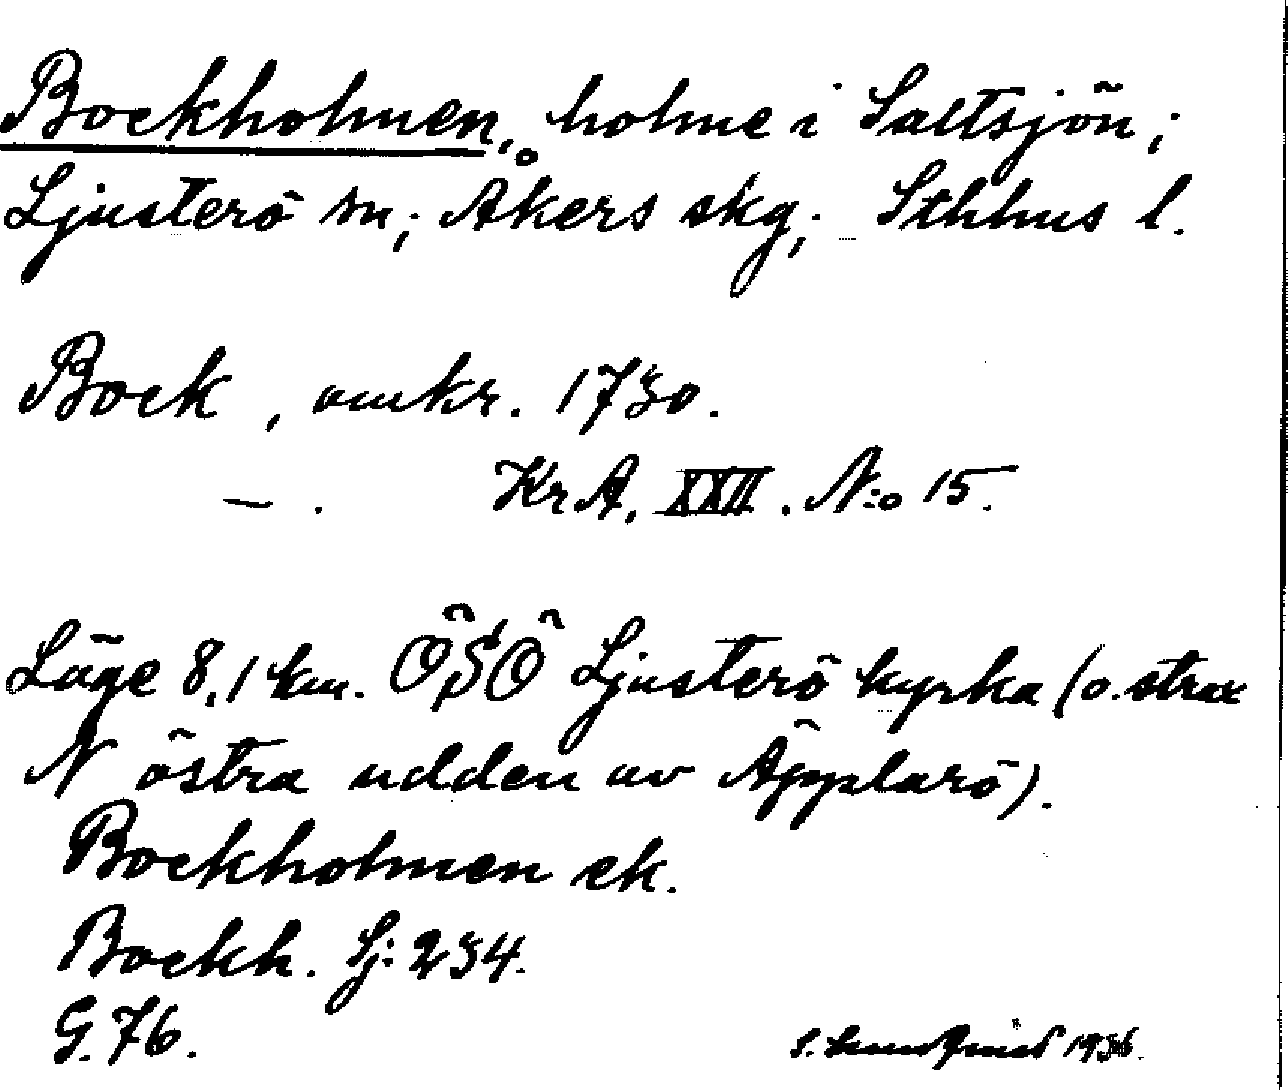 Bockholmen, holme i Saltsjön;
Ljusterö sn; Åkers skg; Sthlms l.
Bock, omkr. 1730.
— . KrA, XXII. N:o 15.
Läge 8,1 km. ÖSÖ Ljusterö kyrka (o. strax
N östra udden av Äpplarö).
Bockholmen ek.
Bockh. Sj: 234.
G. 76.
S. 193